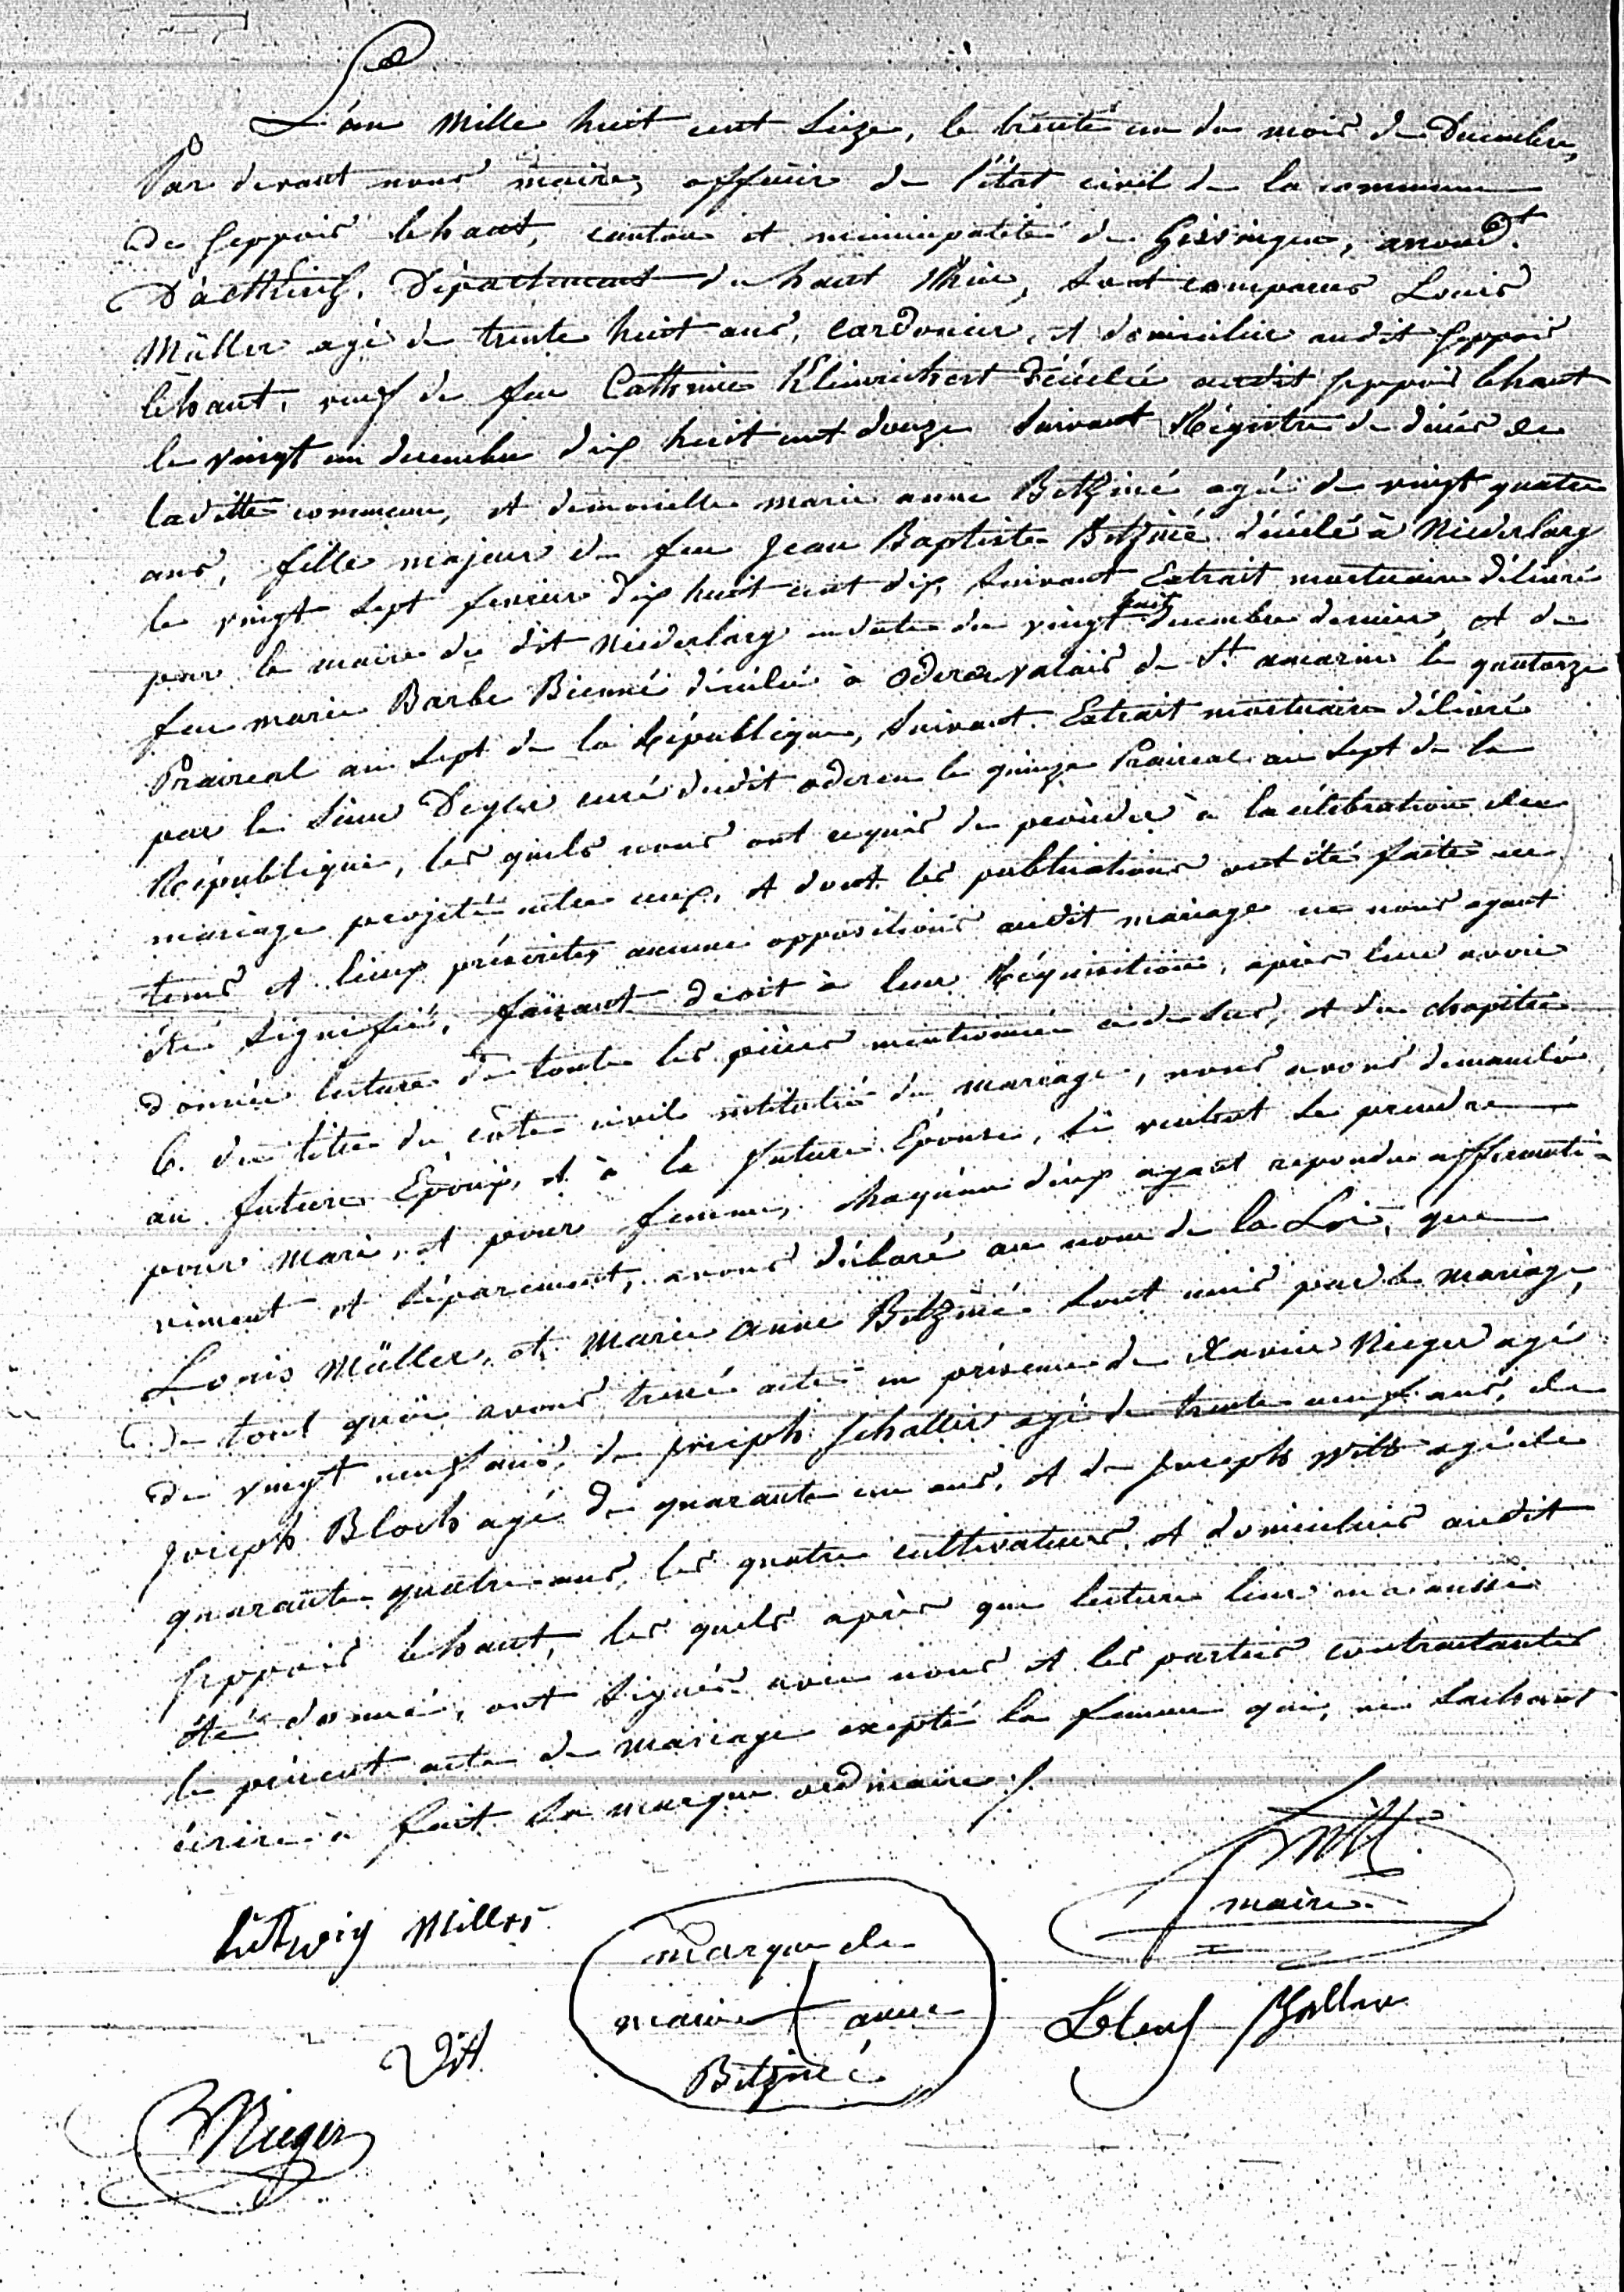 L'an mille huit cent seize, le trente un du mois de Decembre,
Par devant nous maire, officier de l'état civil de la commune
de Seppois lehaut, canton et municipalité de hirsingen, arrond.t
D'altkirch, Département du haut Rhin, sont comparus Louis
Müller agé de trente huit ans, cardonier, et domicilié audit Seppois
lehaut, veuf de feu Catherine décédée audit Seppois lehaut
le vingt un decembre dix huit cent douze suivant Régistre de décès de
laditte commune, et demoiselle marie anne Betziné agée de vingt quatre
ans, fille majeur de feu Jean Baptiste Betziné décédé à Niederlarg
le vingt sept fevrier dix huit cent dix, suivant Extrait mortuaire délivré
par le maire du dit Niederlarg en date du vingt huit decembre dernier, et de
feu marie Barbe Bienné décédée à oderen valais de St. amarin le quatorze
Praireal an sept de la République, suivant Extrait mortuaire délivré
par le sieur curé dudit oderen le quinze Praireal an sept de la
République, les quels nous ont requis de proceder à la célébration du
mariage projeté entre eux, et dont les publications ont été faite en
tems et lieux préscrites, aucune oppositions audit mariage ne nous ayant
été signifié, faisant droit à leur Réquisitions, après leur avoir
donnée lecture de toute les pièces mentionnée ci-dessus, et du chapitre
6. du titre du code civil intitulé du mariage, nous avons demandée
au future Epoux, et à la future Epouse, si veulent se prendre
pour mari, et pour femme, chaqu'un d'eux ayant repondu affirmati-
vement et séparement, avons déclaré au nom de la Loi, que
Louis Müller, et Marie anne Betziné sont unis par le mariage,
de tout quoi avons, acte en présence de Xavier Rieger agé
de vingt neuf ans, de joseph Schaller agé de trente neuf ans, de
joseph Bloch agé de quarante un ans, et de joseph Witt agé de
quarante quatre ans, les quatre cultivateurs, et domiciliés audit
Seppois lehaut, les quels après que lecture leur en a aussi
été donnée, ont signés avec nous et les parties contractantes
le présent acte de mariage excepté la femme qui, ne sachant
écrire à fait sa marque ordinaire ./.
Witt
maire
Ludwig Miller
marque de
marie anne
Betziné
Schaller
Vitt
Rieger